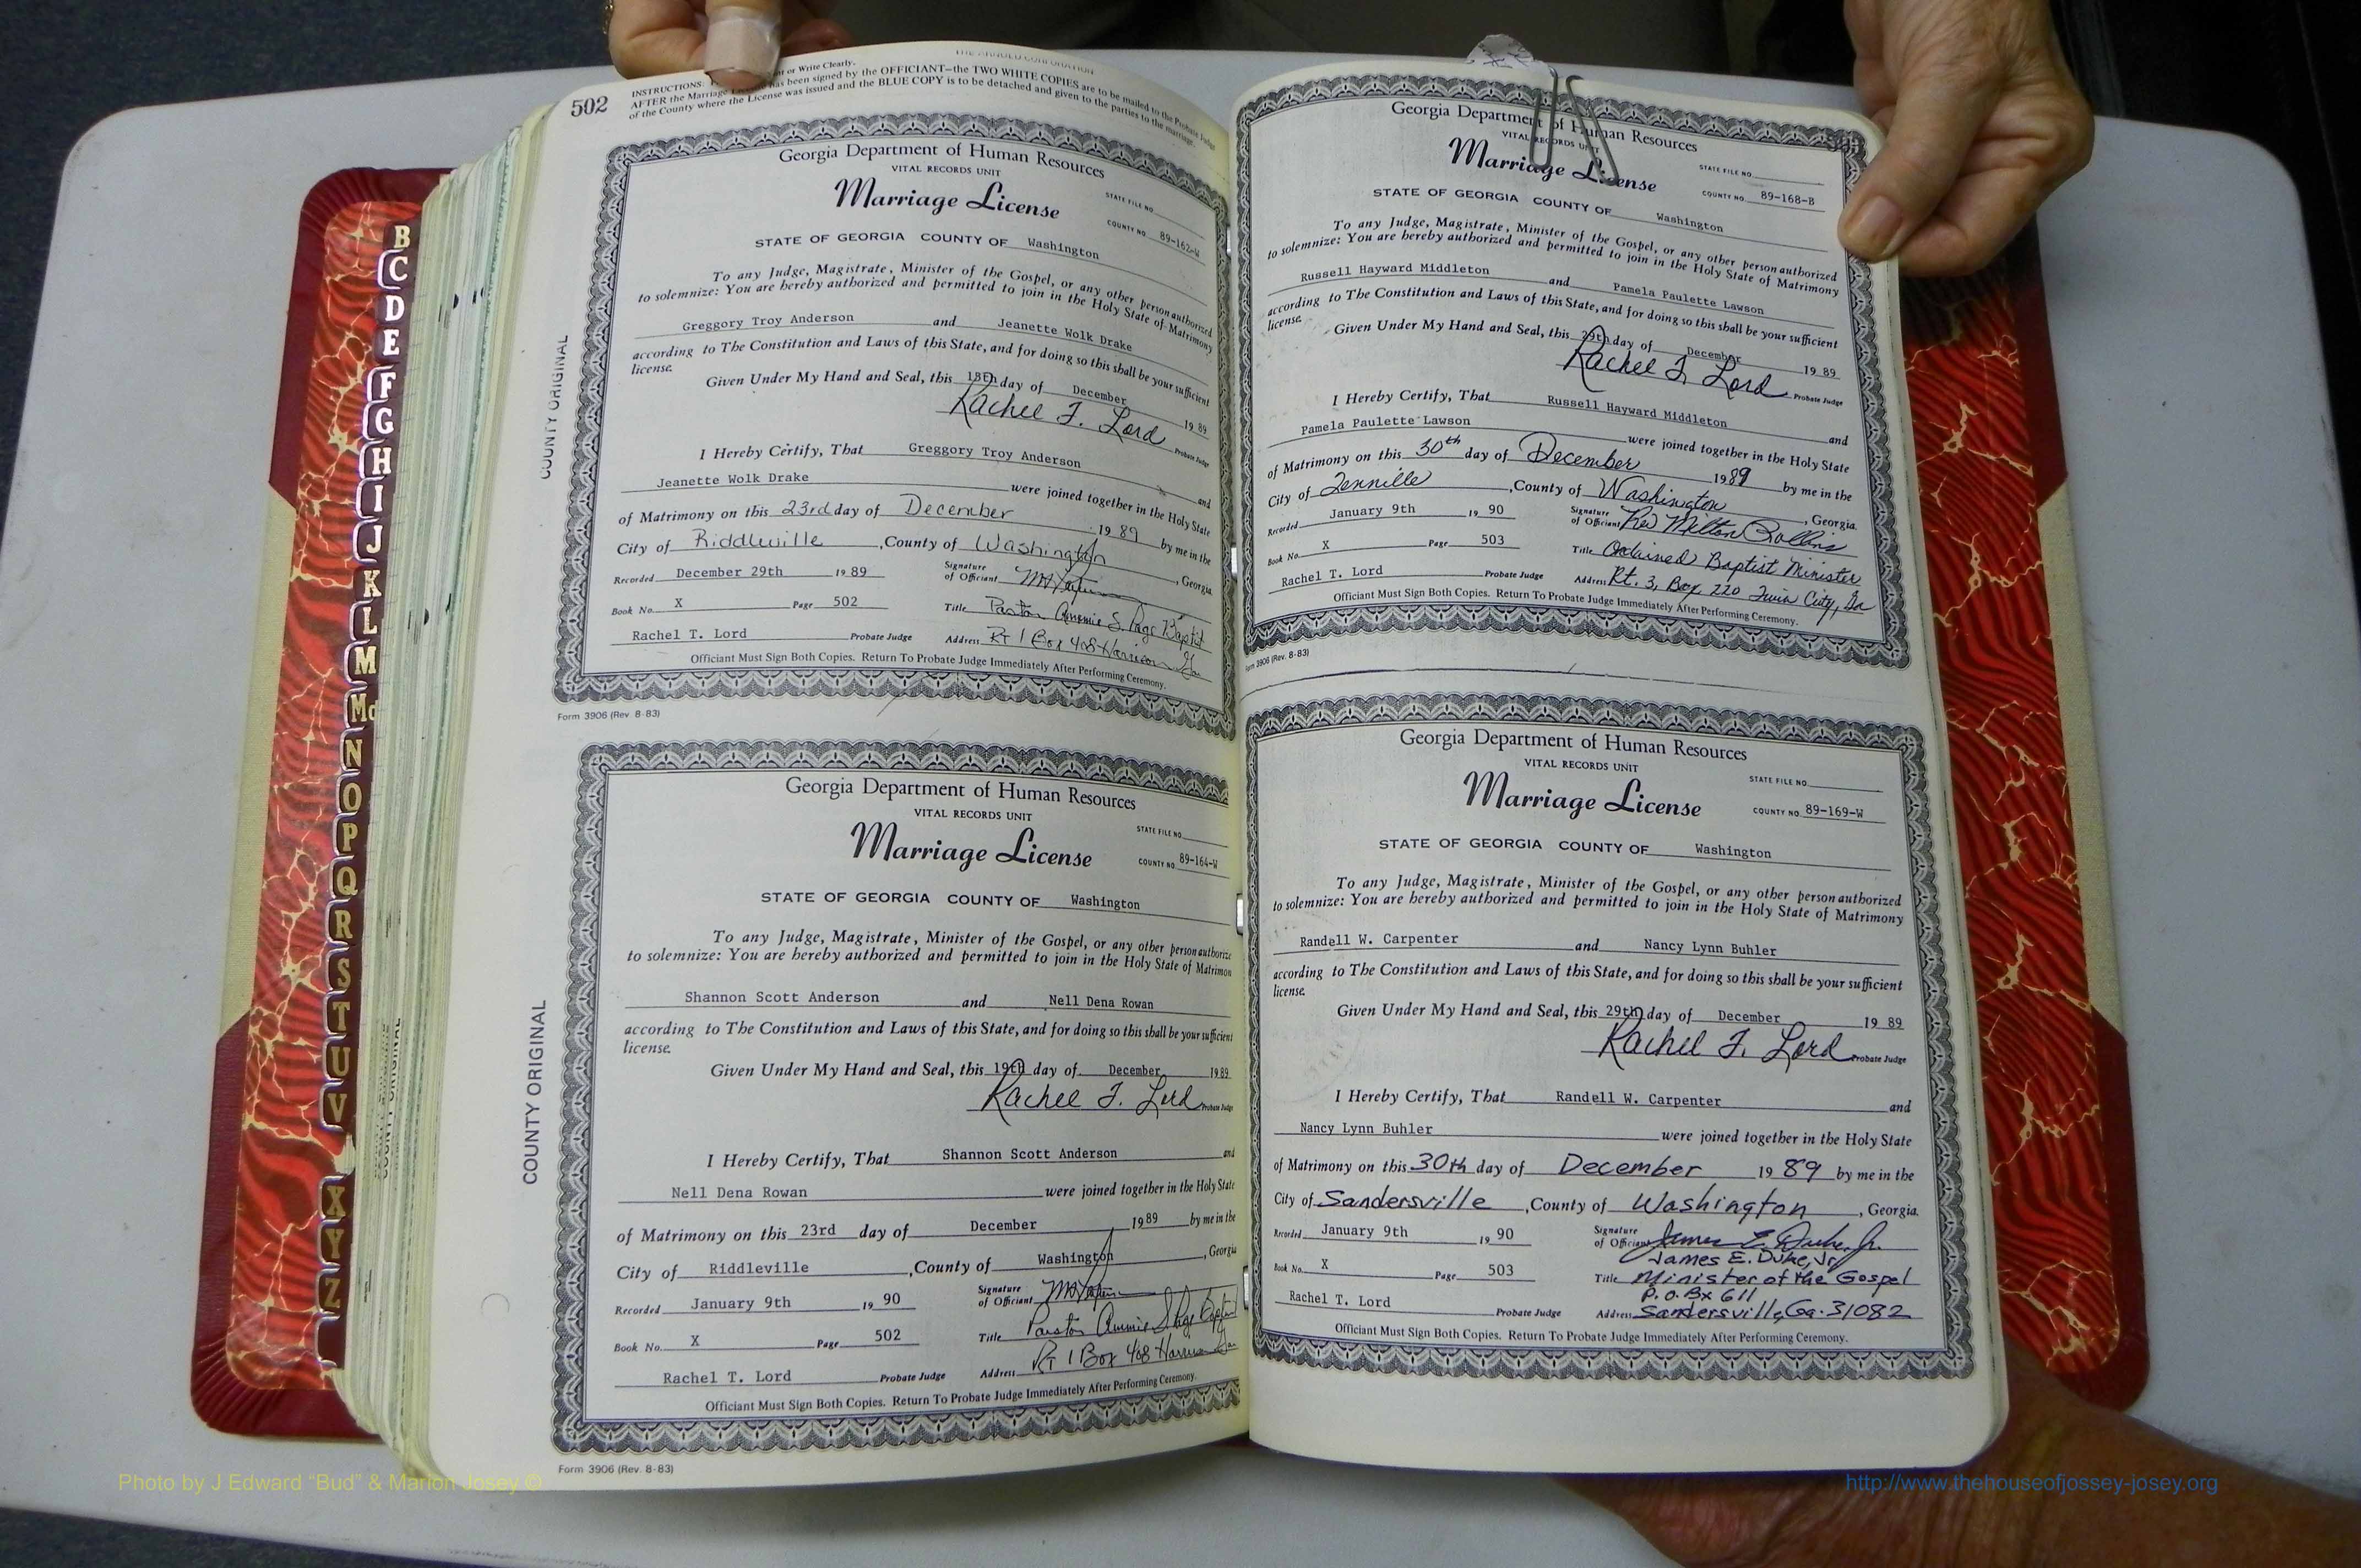 502
INSTRUCTIONS: or Write Clearly.
AFTER the Marriage License has been signed by the OFFICIANT—the TWO WHITE COPIES are to be mailed to the Probate Judge
of the County where the License was issued and the BLUE COPY is to be detached and given to the parties to the marriage.
COUNTY ORIGINAL
Georgia Department of Human Resources
VITAL RECORDS UNIT
Marriage License
STATE FILE NO.
COUNTY NO. 89-162-W
STATE OF GEORGIA COUNTY OF Washington
To any Judge, Magistrate, Minister of the Gospel, or any other person authorized
to solemnize: You are hereby authorized and permitted to join in the Holy State of Matrimony
Greggory Troy Anderson and Jeanette Wolk Drake
according to The Constitution and Laws of this State, and for doing so this shall be your sufficient
license.
Given Under My Hand and Seal, this 18th day of December 19 89
Rachel T. Lord Probate Judge
I Hereby Certify, That Greggory Troy Anderson and
Jeanette Wolk Drake were joined together in the Holy State
of Matrimony on this 23rd day of December 19 89 by me in the
City of Riddleville, County of Washington, Georgia
Recorded December 29th 19 89 Signature of Officiant
Book No. X Page 502 Title Pastor Ammie S. Page Baptist
Rachel T. Lord Probate Judge Address Rt 1 Box 408 Harrison Ga
Officiant Must Sign Both Copies. Return To Probate Judge Immediately After Performing Ceremony.
Form 3906 (Rev. 8-83)
COUNTY ORIGINAL
Georgia Department of Human Resources
VITAL RECORDS UNIT
Marriage License
STATE FILE NO.
COUNTY NO. 89-164-W
STATE OF GEORGIA COUNTY OF Washington
To any Judge, Magistrate, Minister of the Gospel, or any other person authorize
to solemnize: You are hereby authorized and permitted to join in the Holy State of Matrimon
Shannon Scott Anderson and Nell Dena Rowan
according to The Constitution and Laws of this State, and for doing so this shall be your sufficient
license.
Given Under My Hand and Seal, this 19th day of December 19 89
Rachel T. Lord Probate Judge
I Hereby Certify, That Shannon Scott Anderson and
Nell Dena Rowan were joined together in the Holy State
of Matrimony on this 23rd day of December 19 89 by me in the
City of Riddleville, County of Washington, Georgia
Recorded January 9th 19 90 Signature of Officiant
Book No. X Page 502 Title Pastor Ammie S Page Baptist
Rachel T. Lord Probate Judge Address Rt 1 Box 408 Harrison Ga
Officiant Must Sign Both Copies. Return To Probate Judge Immediately After Performing Ceremony.
Form 3906 (Rev. 8-83)
Georgia Department of Human Resources
VITAL RECORDS UNIT
Marriage License
STATE FILE NO.
COUNTY NO. 89-168-B
STATE OF GEORGIA COUNTY OF Washington
To any Judge, Magistrate, Minister of the Gospel, or any other person authorized
to solemnize: You are hereby authorized and permitted to join in the Holy State of Matrimony
Russell Hayward Middleton and Pamela Paulette Lawson
according to The Constitution and Laws of this State, and for doing so this shall be your sufficient
license.
Given Under My Hand and Seal, this 29th day of December 19 89
Rachel T. Lord Probate Judge
I Hereby Certify, That Russell Hayward Middleton and
Pamela Paulette Lawson were joined together in the Holy State
of Matrimony on this 30th day of December 1989 by me in the
City of Tennille, County of Washington, Georgia.
Recorded January 9th 19 90 Signature of Officiant Rev Milton Rollins
Book No. X Page 503 Title Ordained Baptist Minister
Rachel T. Lord Probate Judge Address Rt. 3, Box 220 Twin City, Ga
Officiant Must Sign Both Copies. Return To Probate Judge Immediately After Performing Ceremony.
Form 3906 (Rev. 8-83)
Georgia Department of Human Resources
VITAL RECORDS UNIT
Marriage License
STATE FILE NO.
COUNTY NO. 89-169-W
STATE OF GEORGIA COUNTY OF Washington
To any Judge, Magistrate, Minister of the Gospel, or any other person authorized
to solemnize: You are hereby authorized and permitted to join in the Holy State of Matrimony
Randell W. Carpenter and Nancy Lynn Buhler
according to The Constitution and Laws of this State, and for doing so this shall be your sufficient
license.
Given Under My Hand and Seal, this 29th day of December 19 89
Rachel T. Lord Probate Judge
I Hereby Certify, That Randell W. Carpenter and
Nancy Lynn Buhler were joined together in the Holy State
of Matrimony on this 30th day of December 19 89 by me in the
City of Sandersville, County of Washington, Georgia.
Recorded January 9th 19 90 Signature of Officiant James E. Duke, Jr.
James E. Duke, Jr
Book No. X Page 503 Title Minister of the Gospel
P.O. Bx 611
Rachel T. Lord Probate Judge Address Sandersville, Ga. 31082
Officiant Must Sign Both Copies. Return To Probate Judge Immediately After Performing Ceremony.
B
C
D
E
F
G
H
I
J
K
L
M
Mc
N
O
P
Q
R
S
T
U
V
X
Y
Z
Photo by J Edward “Bud” & Marion Josey ©
http://www.thehouseofjossey-josey.org